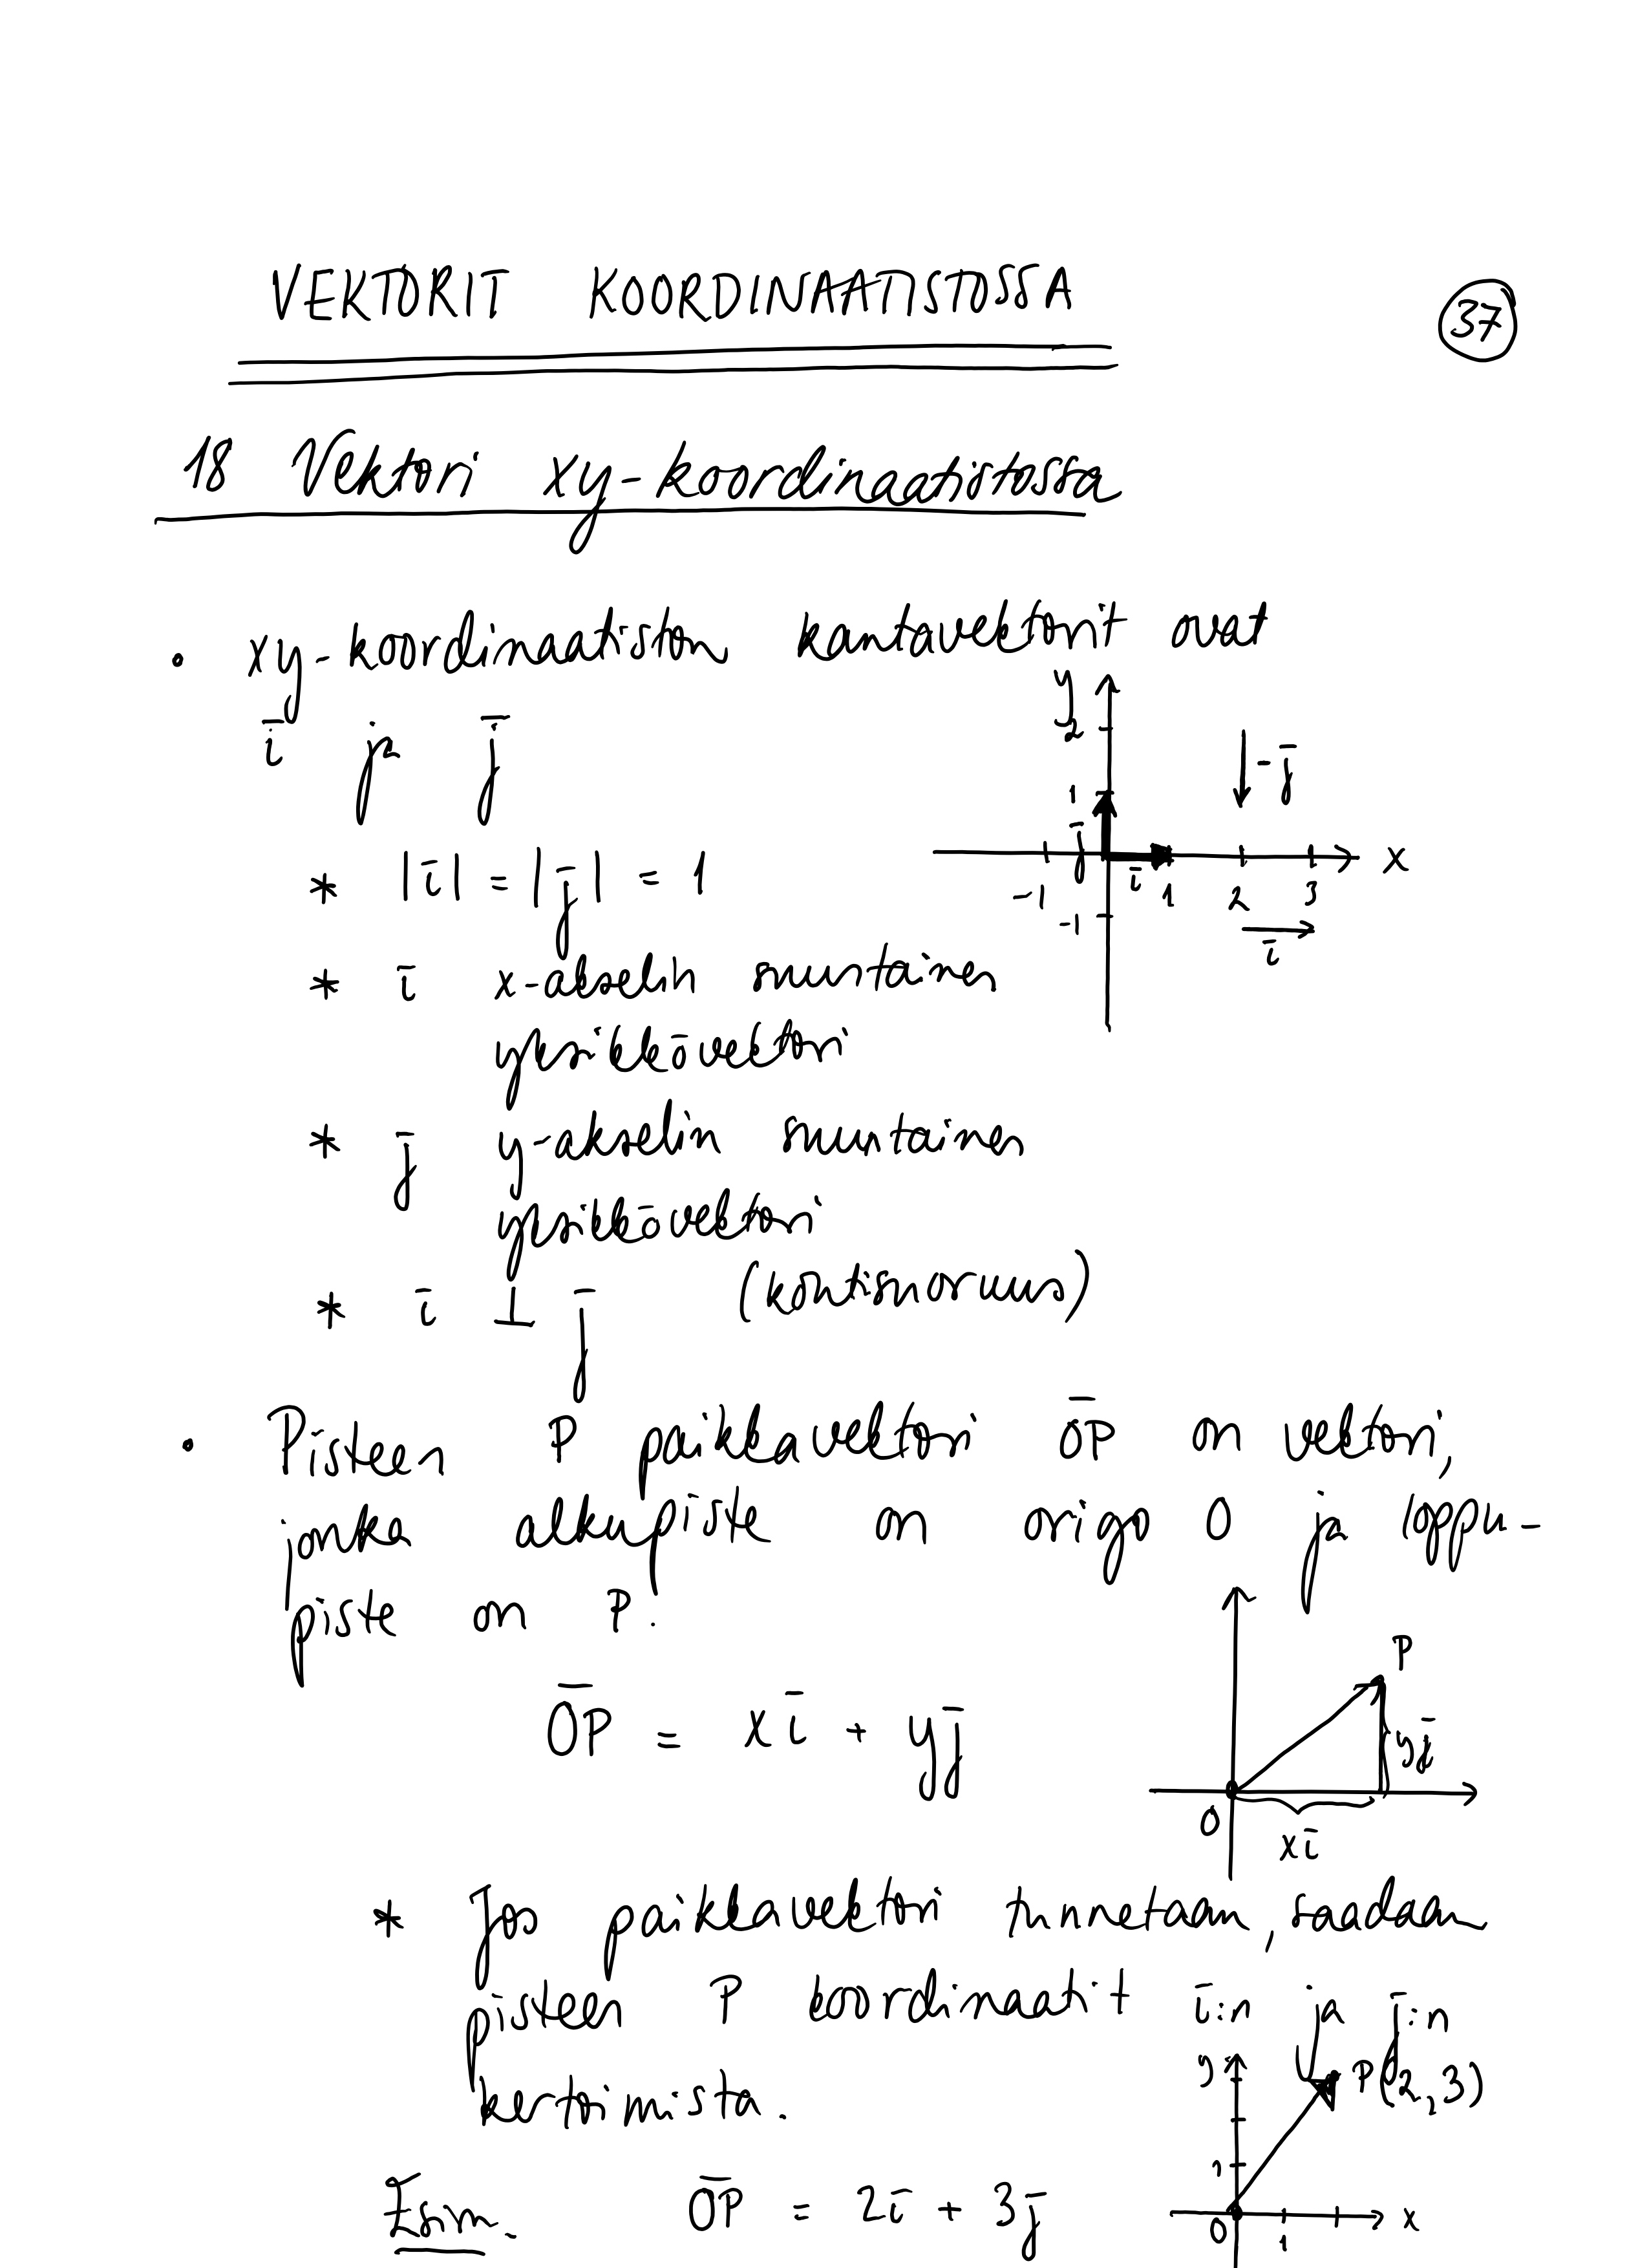 VEKTORIT KOORDINAATISTOSSA
37
18 Vektori xy-koordinaatistossa
• xy-koordinaatiston kantavektorit ovat
i̅ ja j̅
y
2
1
j̅
-j̅
x
-1
i̅
1
2
3
-1
i̅
* |i̅| = |j̅| = 1
* i̅ x-akselin suuntainen
yksikkövektori
* j̅ y-akselin suuntainen
yksikkövektori
* i̅ ⊥ j̅ (kohtisuoruus)
• Pisteen P paikkavektori O̅P̅ on vektori,
jonka alkupiste on origo O ja loppu-
piste on P.
O̅P̅ = xi̅ + yj̅
P
yj̅
O
xi̅
* Jos paikkavektori tunnetaan, saadaan
pisteen P koordinaatit i̅:n ja j̅:n
kertoimista.
y
P(2,3)
1
Esim. O̅P̅ = 2i̅ + 3j̅
O
1
x